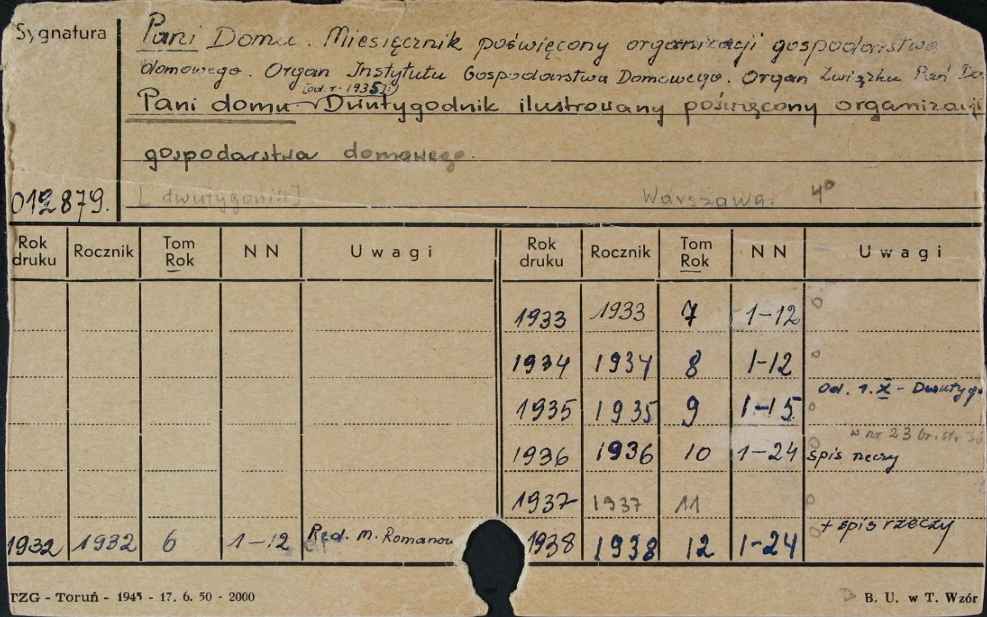 Sygnatura
Pani Domu. Miesięcznik poświęcony organizacji gospodarstwa
domowego. Organ Instytutu Gospodarstwa Domowego. Organ Związku Pań Do
[od r. 1935]
Pani domu Dwutygodnik ilustrowany poświęcony organizacji
gospodarstwa domowego.
012879. [dwutygodnik] Warszawa. 4°
Rok druku Rocznik Tom Rok N N Uwagi Rok druku Rocznik Tom Rok N N Uwagi
1933 1933 7 1-12
1934 1934 8 1-12
Od. 1. X - Dwutygo
1935 1935 9 1-15
w nr 23 br. str.
1936 1936 10 1-24 spis rzeczy
1937 1937 11
1932 1932 6 1-12 Red. M. Romanow 1938 1938 12 1-24 + spis rzeczy
TZG - Toruń - 1945 - 17. 6. 50 - 2000 B. U. w T. Wzór